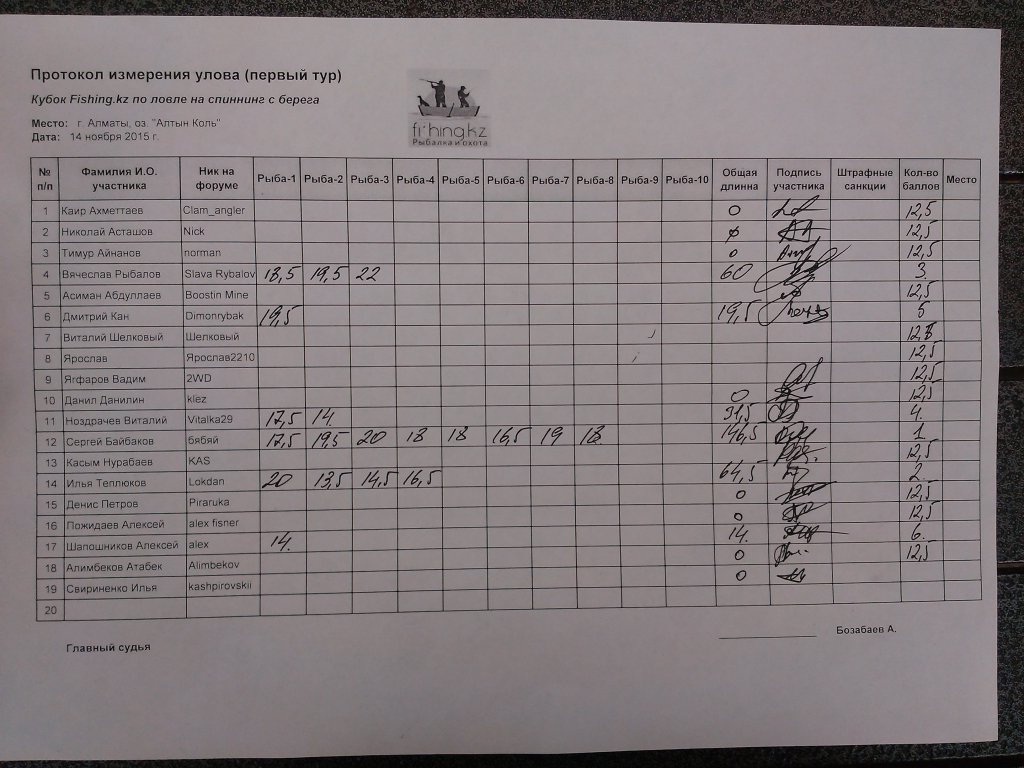 Протокол измерения улова (первый тур)
Кубок Fishing.kz по ловле на спиннинг с берега
Место: г. Алматы, оз. "Алтын Коль"
Дата: 14 ноября 2015 г.
fishing.kz
Рыбалка и охота
№ п/п Фамилия И.О. участника Ник на форуме Рыба-1 Рыба-2 Рыба-3 Рыба-4 Рыба-5 Рыба-6 Рыба-7 Рыба-8 Рыба-9 Рыба-10 Общая длинна Подпись участника Штрафные санкции Кол-во баллов Место
1 Каир Ахметтаев Clam_angler 0 12,5
2 Николай Асташов Nick 0 12,5
3 Тимур Айнанов norman 0 12,5
4 Вячеслав Рыбалов Slava Rybalov 18,5 19,5 22 60 3
5 Асиман Абдуллаев Boostin Mine 12,5
6 Дмитрий Кан Dimonrybak 19,5 19,5 5
7 Виталий Шелковый Шелковый 12,5
8 Ярослав Ярослав2210 12,5
9 Ягфаров Вадим 2WD 12,5
10 Данил Данилин klez 0 12,5
11 Ноздрачев Виталий Vitalka29 17,5 14 31,5 4
12 Сергей Байбаков бябяй 17,5 19,5 20 18 18 16,5 19 18 146,5 1
13 Касым Нурабаев KAS 12,5
14 Илья Теплюков Lokdan 20 13,5 14,5 16,5 64,5 2
15 Денис Петров Piraruka 0 12,5
16 Пожидаев Алексей alex fisner 0 12,5
17 Шапошников Алексей alex 14. 14. 6.
18 Алимбеков Атабек Alimbekov 0 12,5
19 Свириненко Илья kashpirovskii 0
20
Главный судья Бозабаев А.